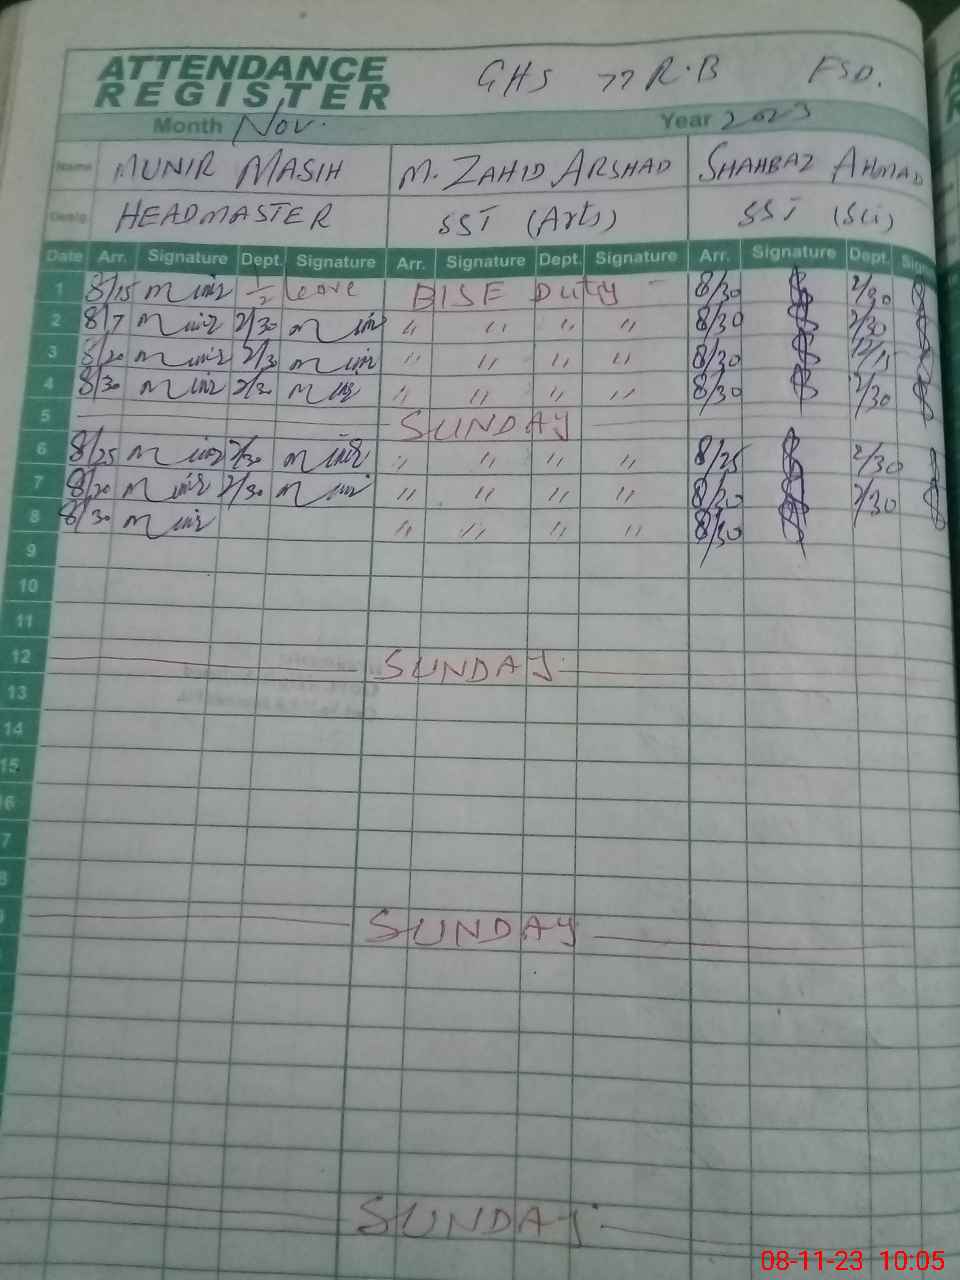 ATTENDANCE REGISTER GHS 77 R.B FSD.
Month Nov. Year 2023
Name MUNIR MASIH M. ZAHID ARSHAD SHAHBAZ AHMAD
HEADMASTER SST (Arts) SST (Sci)
Date Arr. Signature Dept. Signature Arr. Signature Dept. Signature Arr. Signature Dept.
1 8/15 Munir 1/2 leave BISE Duty 8/30 2/30
2 8/7 Munir 2/30 Munir " " " " 8/30 2/30
3 8/20 Munir 2/30 Munir " " " " 8/30 12/15
4 8/30 Munir 2/30 Munir " " " " 8/30 2/30
5 SUNDAY
6 8/25 Munir 2/30 Munir " " " " 8/25 2/30
7 8/20 Munir 2/30 Munir " " " " 8/20 2/30
8 8/30 Munir " " " " 8/30
9
10
11
12 SUNDAY
13
14
15
6
7
8
9 SUNDAY
SUNDAY
08-11-23 10:05